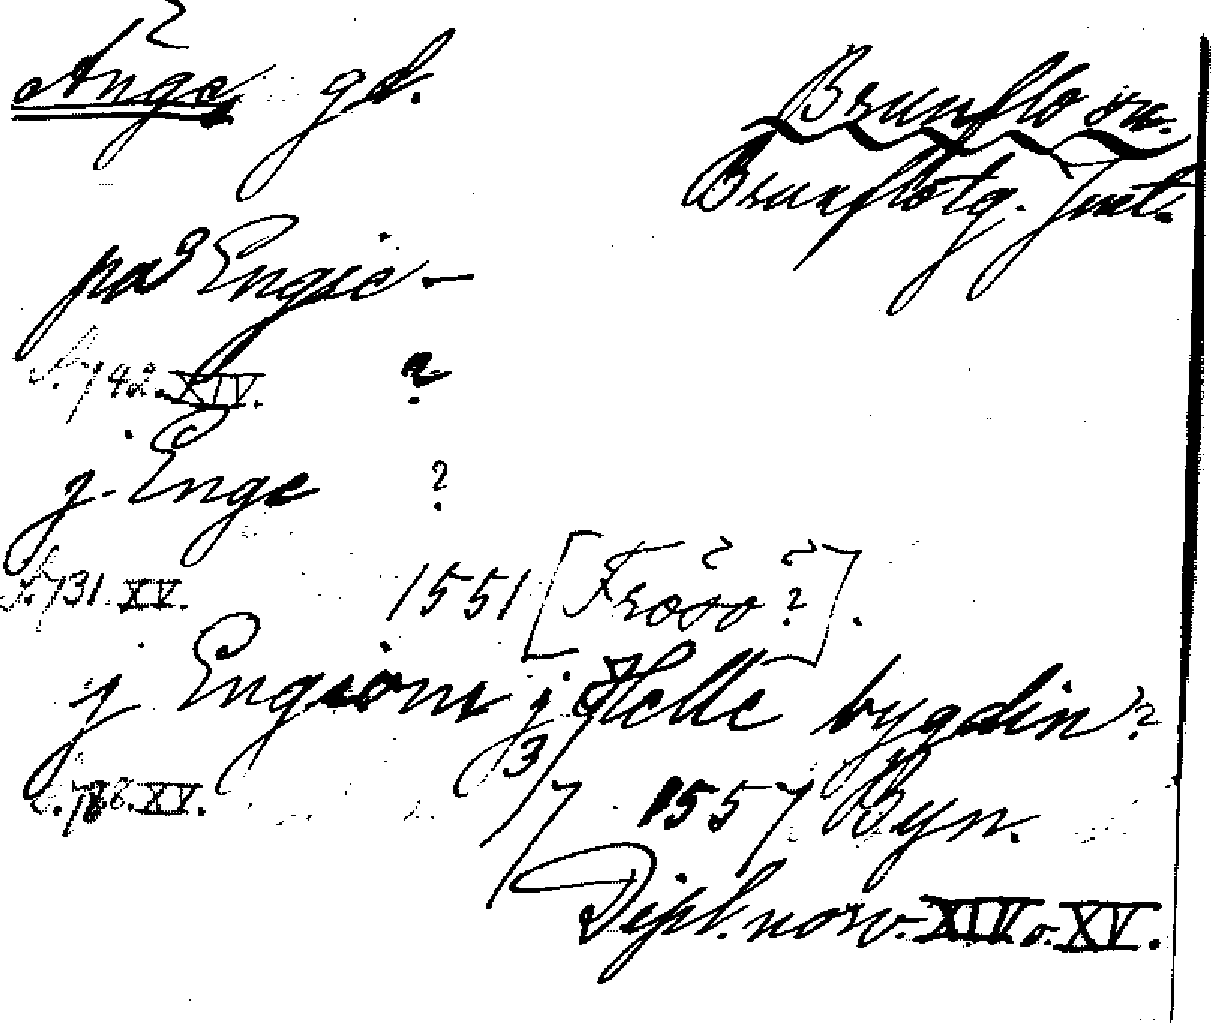 Änge gd.
Brunflo sn.
Brunflo tg. Jmtl.
paa Engie —
S. 742. XIV. ?
j. Enge ?
S. 731. XV. 1551 [Frösö ?].
j Engiom j Helle bygdin ?
XV. 3/7 1557 Byn.
Dipl. norv. XIV o. XV.